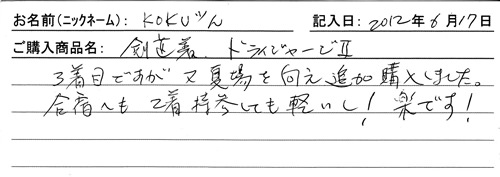 お名前(ニックネーム): KOKUりん 記入日: 2012年 6月17日
ご購入商品名: 剣道着、ドライジャージⅡ
3着目ですが又夏場を向え追加購入しました。
合宿へも2着持参しても軽いし!楽です!